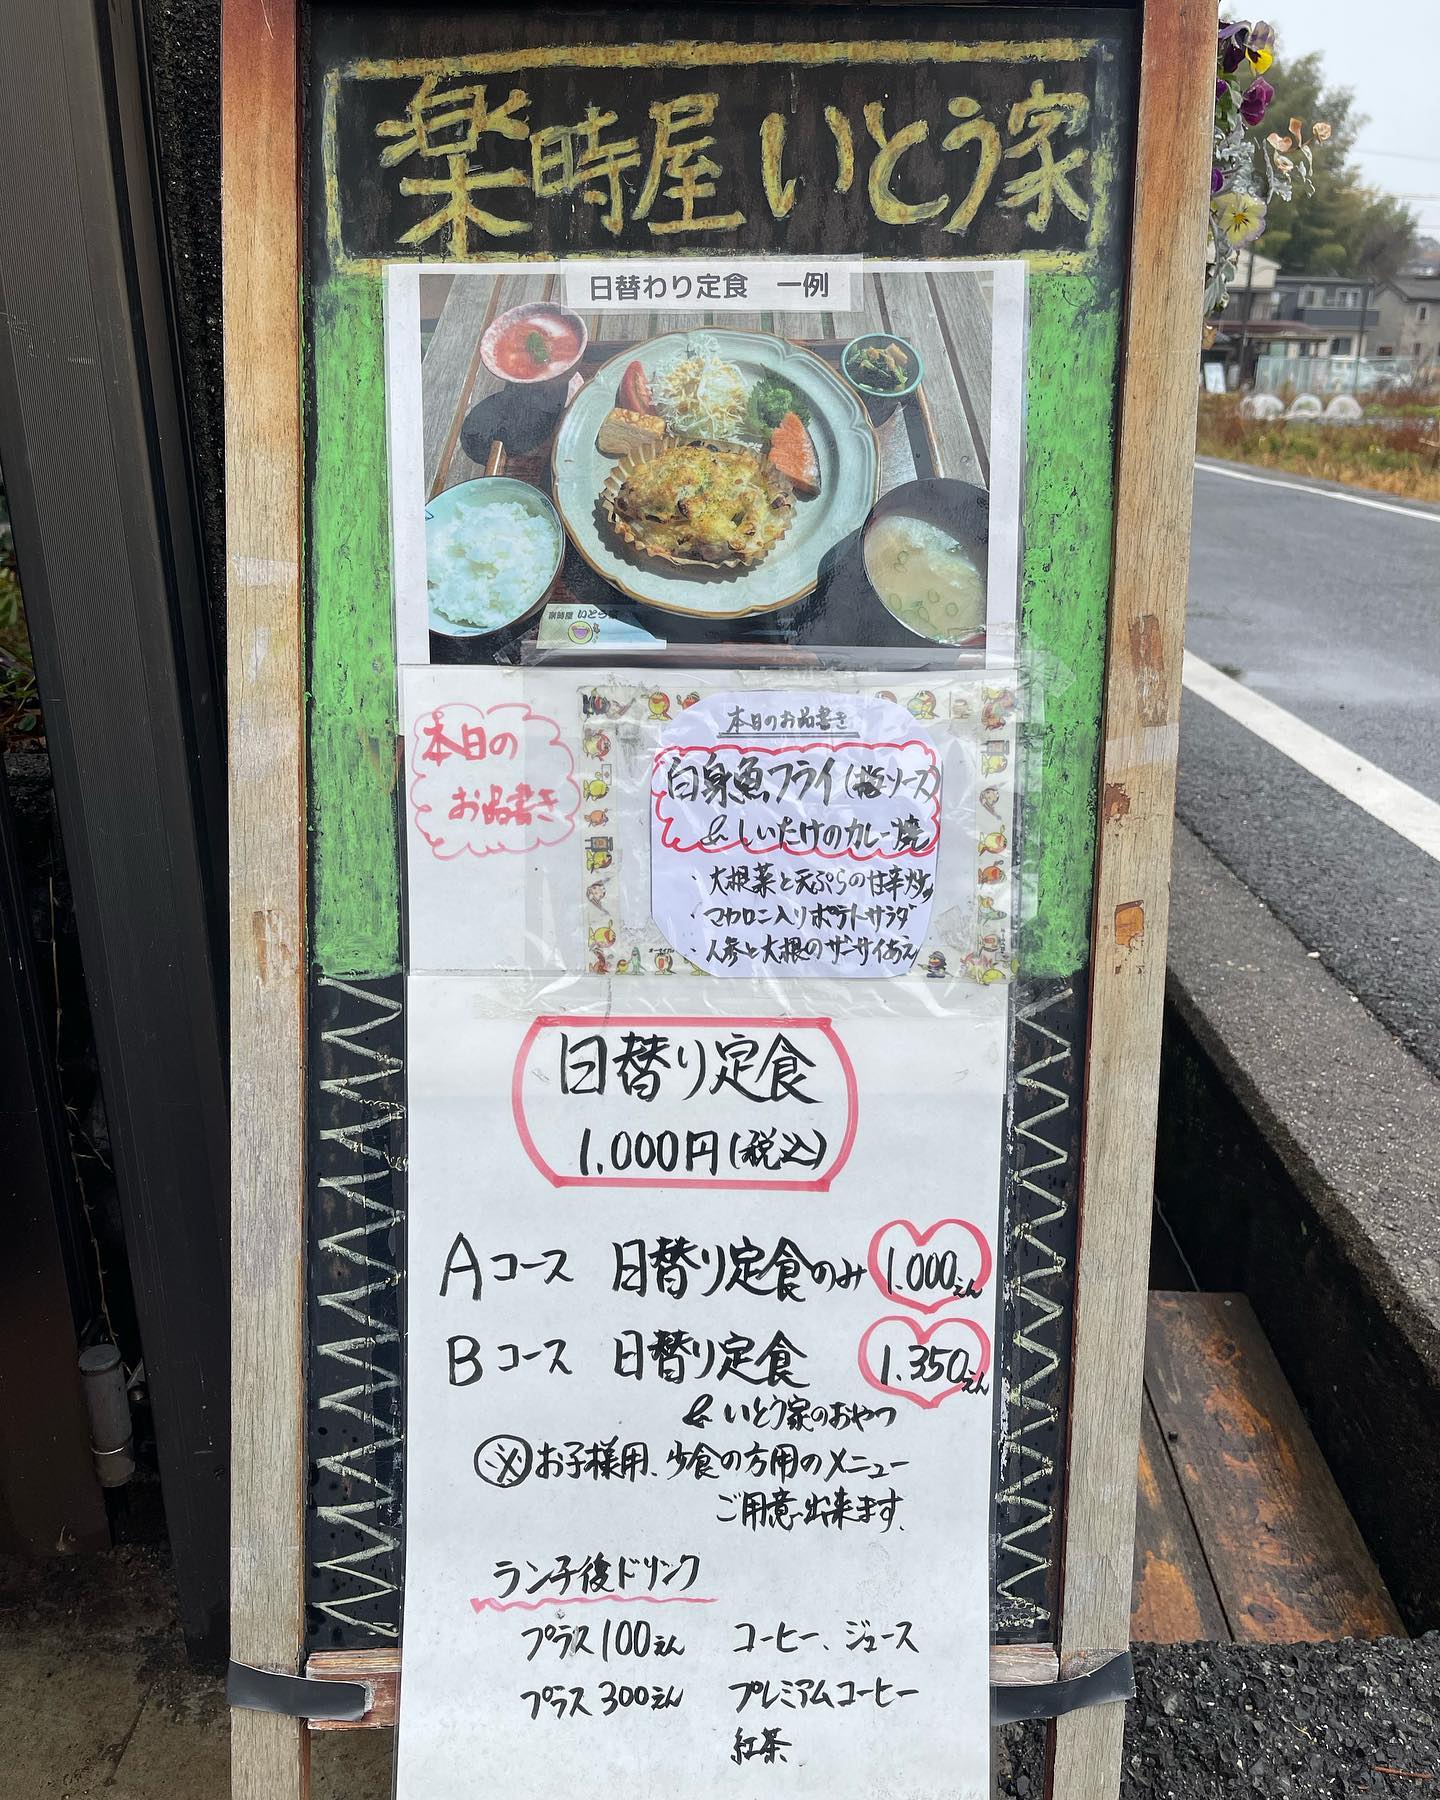 楽時屋 いとう家
日替わり定食 一例
楽時屋 いとう家
本日の
お品書き
本日のお品書き
白身魚フライ(梅ソース)
&しいたけのカレー焼
・大根菜と天ぷらの甘辛炒め
・マカロニ入りポテトサラダ
・人参と大根のザーサイあえ
日替り定食
1.000円(税込)
Aコース 日替り定食のみ 1.000えん
Bコース 日替り定食 1.350えん
& いとう家のおやつ
※お子様用、少食の方用のメニュー
ご用意出来ます。
ランチ後ドリンク
プラス100えん コーヒー、ジュース
プラス300えん プレミアムコーヒー
紅茶